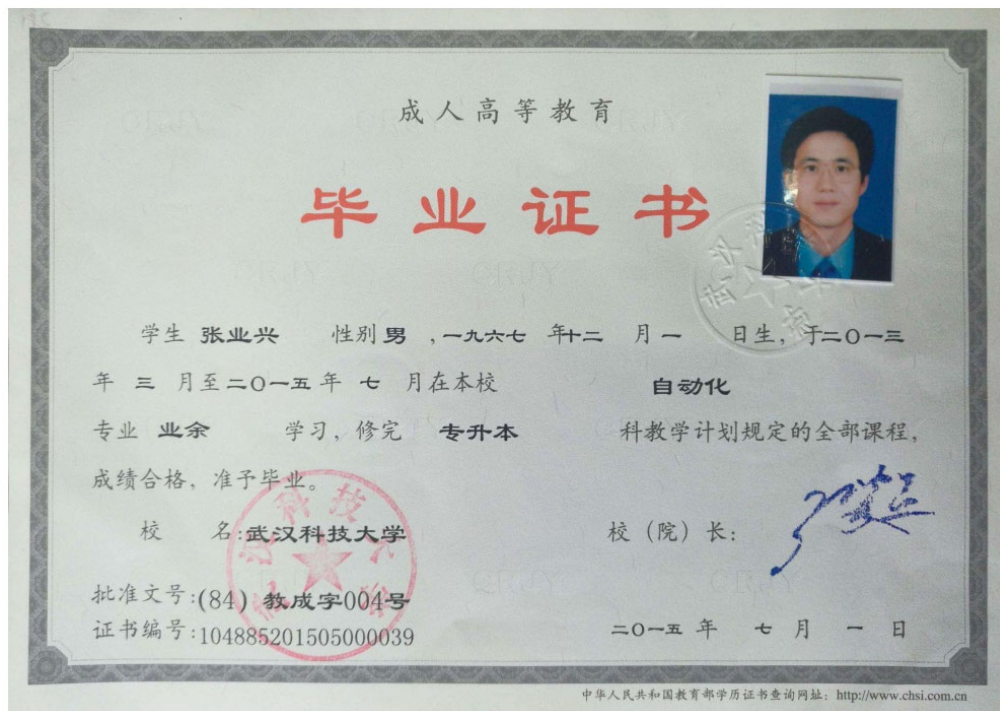 成人高等教育
毕业证书
学生 张业兴 性别 男 ,一九六七 年十二 月 一 日生, 于二〇一三
年 三 月至二〇一五年 七 月在本校 自动化
专业 业余 学习, 修完 专升本 科教学计划规定的全部课程,
成绩合格, 准予毕业。
校 名:武汉科技大学 校（院）长:
批准文号:(84) 教成字004号
证书编号:104885201505000039 二〇一五 年 七 月 一 日
中华人民共和国教育部学历证书查询网址: http://www.chsi.com.cn